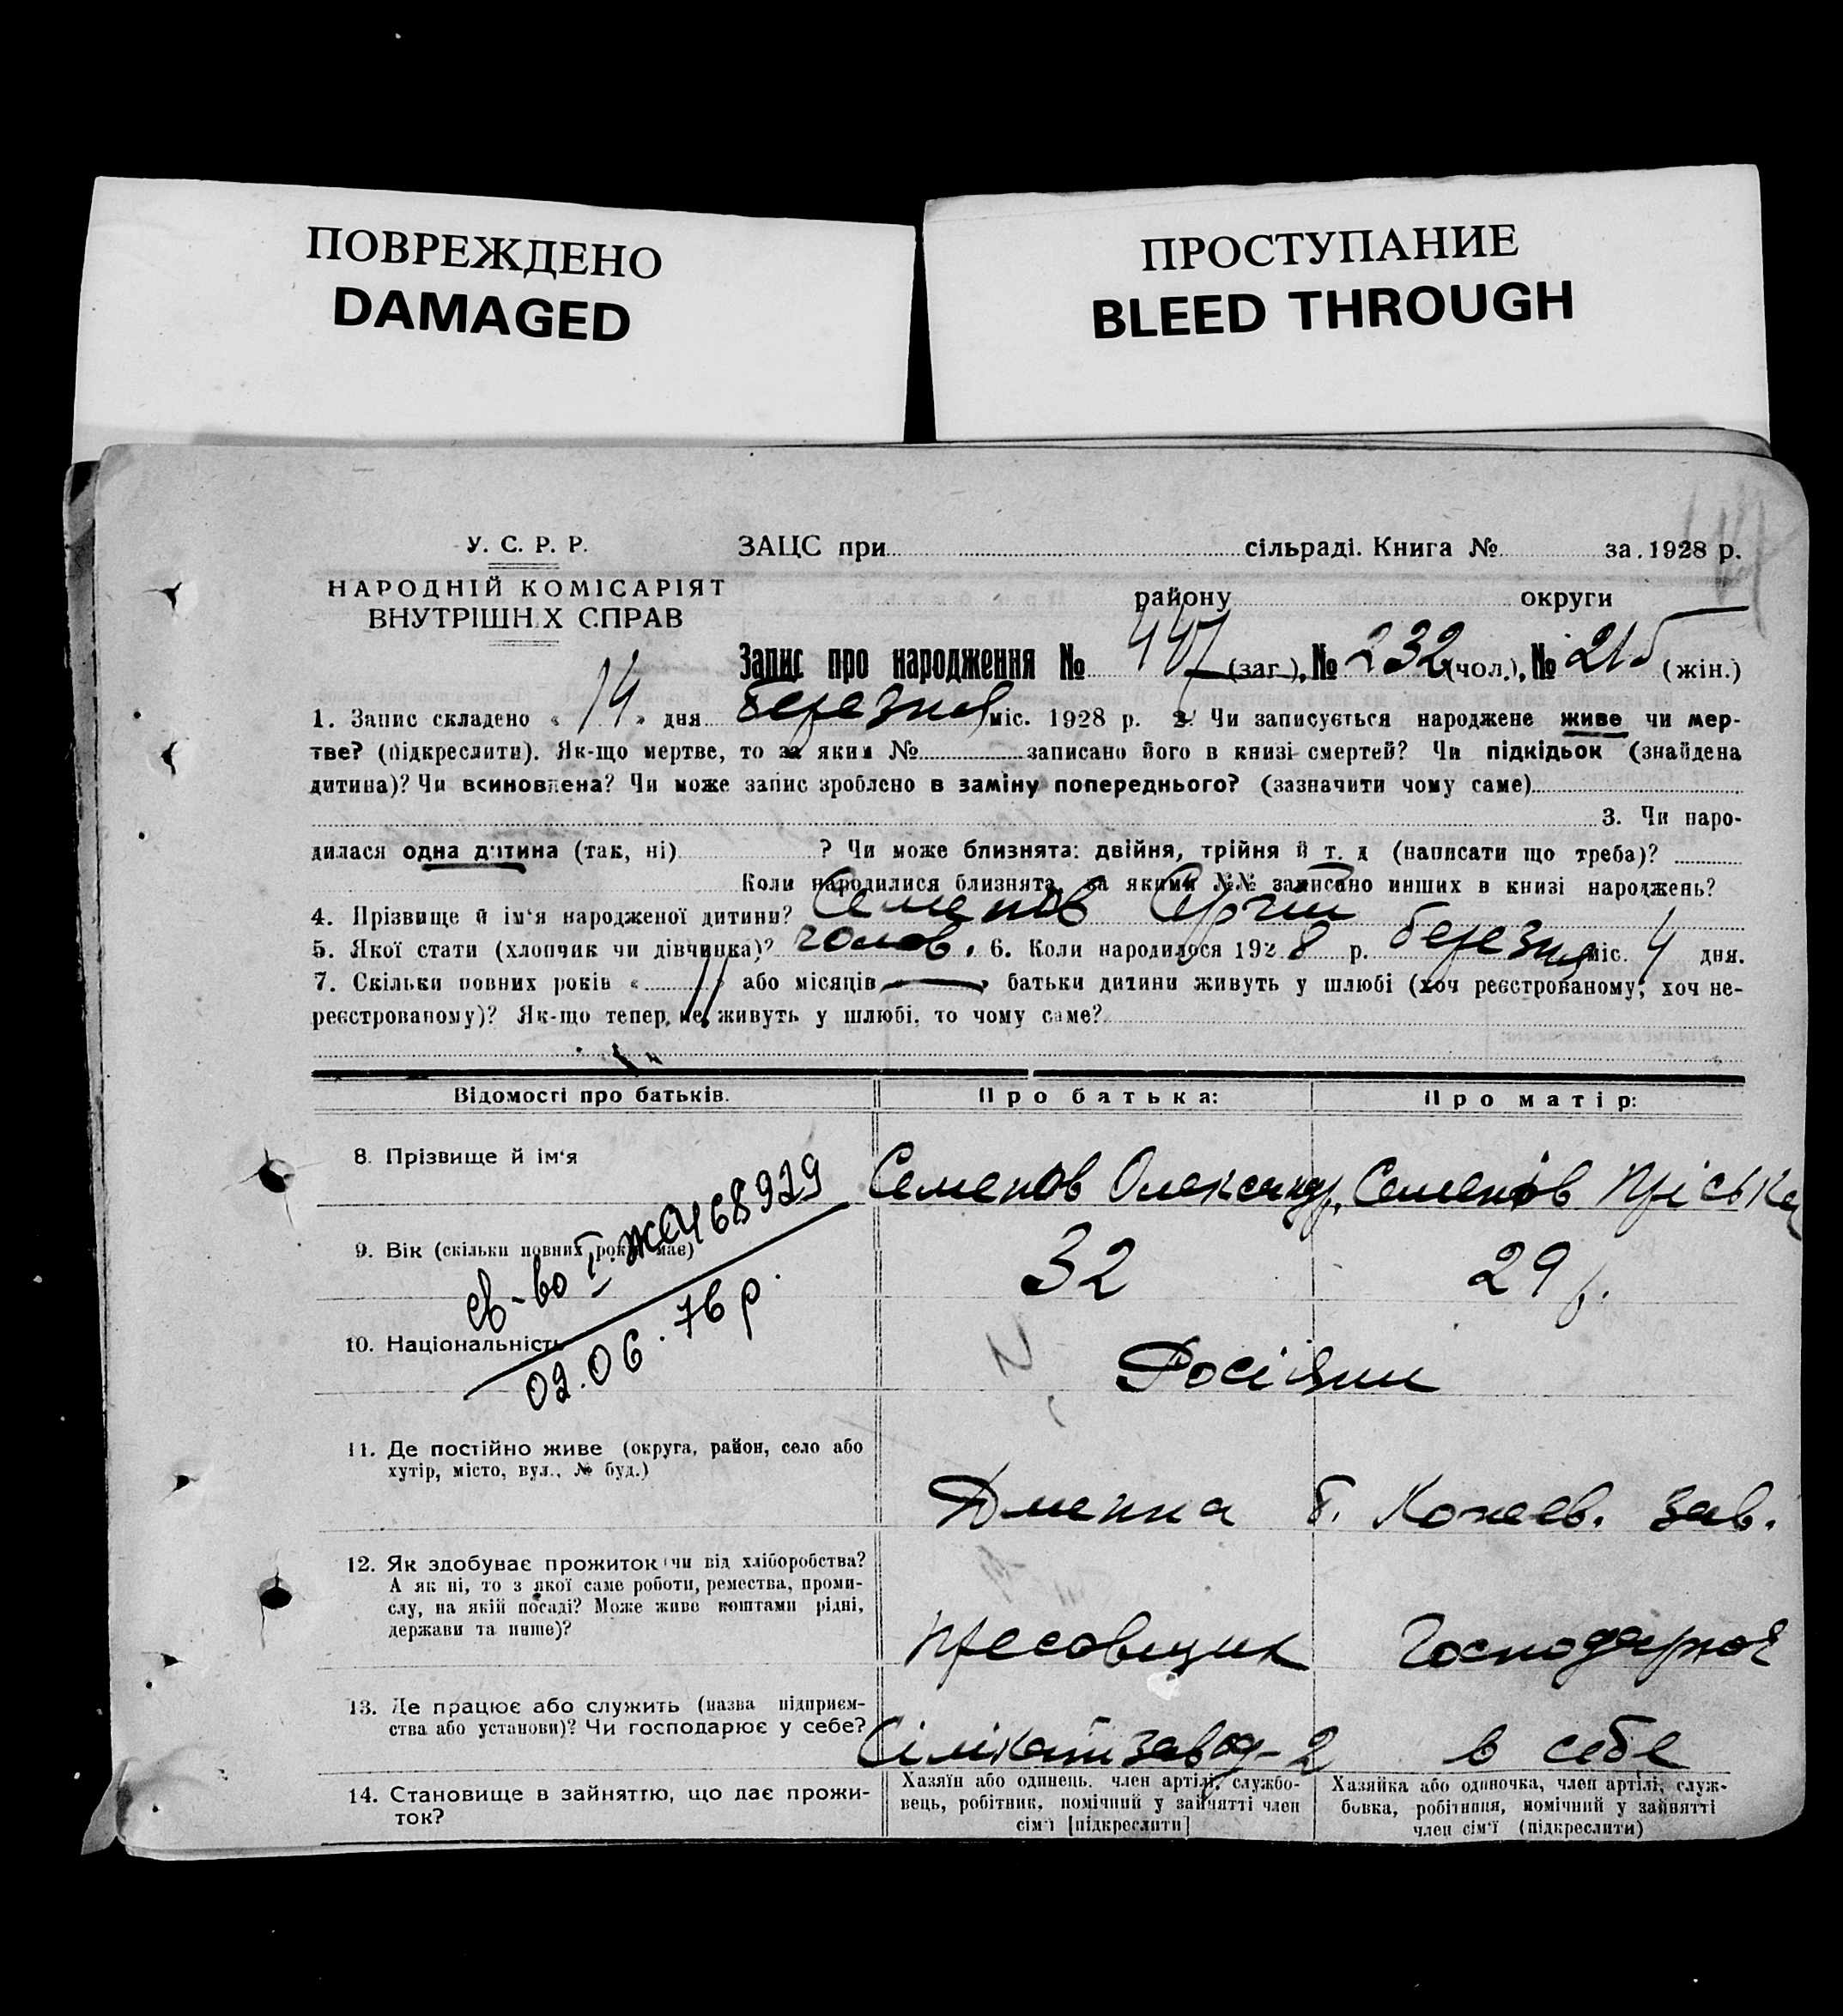 ПОВРЕЖДЕНО
DAMAGED
ПРОСТУПАНИЕ
BLEED THROUGH
У. С. Р. Р.
НАРОДНІЙ КОМІСАРІЯТ
ВНУТРІШН Х СПРАВ
ЗАЦС при сільраді. Книга № за 1928 р.
району округи
Запис про народження № 447 (заг.), № 232 (чол.), № 215 (жін.)
1. Запис складено « 14 » дня березня міс. 1928 р. 2. Чи записується народжене живе чи мер-
тве? (підкреслити). Як-що мертве, то за яким № записано його в книзі смертей? Чи підкідьок (знайдена
дитина)? Чи всиновлена? Чи може запис зроблено в заміну попереднього? (зазначити чому саме)
3. Чи наро-
дилася одна дитина (так, ні) ? Чи може близнята: двійня, трійня й т. д (написати що треба)?
Коли народилися близнята, за якими №№ записано инших в книзі народжень?
4. Прізвище й ім'я народженої дитини? Семенов Сергій
5. Якої стати (хлопчик чи дівчинка)? чолов. 6. Коли народилося 1928 р. березня міс. 4 дня.
7. Скільки повних років « 11 » або місяців « — » батьки дитини живуть у шлюбі (хоч реєстрованому, хоч не-
реєстрованому)? Як-що тепер не живуть у шлюбі, то чому саме?
Відомості про батьків. Про батька: Про матір:
8. Прізвище й ім'я Семенов Олександр. Семенов Пріська
9. Вік (скільки повних років має) 32 29 р.
св-во I-ЖС 468929
02.06.76 р.
10. Національність Росіяни
11. Де постійно живе (округа, район, село або
хутір, місто, вул., № буд.)
зав.
12. Як здобуває прожиток чи від хліборобства?
А як ні, то з якої саме роботи, ремества, проми-
слу, на якій посаді? Може живе коштами рідні,
держави та инше)?
пресовщик
13. Де працює або служить (назва підприєм-
ства або установи)? Чи господарює у себе?
Сілікатн завод-2 в себе
14. Становище в зайняттю, що дає прожи-
ток?
Хазяїн або одинець, член артілі, службо-
вець, робітник, помічний у зайнятті член
сім'ї [підкреслити]
Хазяйка або одиночка, член артілі, служ-
бовка, робітниця, помічний у зайнятті
член сім'ї (підкреслити)